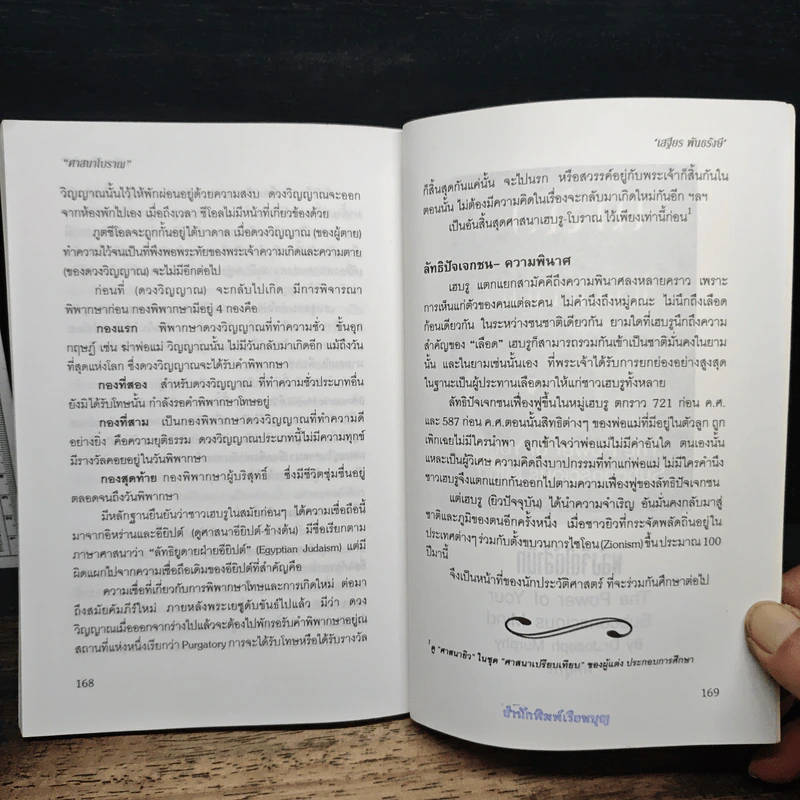 "ศาสนาโบราณ"
วิญญาณนั้นไว้ให้พักผ่อนอยู่ด้วยความสงบ ดวงวิญญาณจะออก
จากห้องพักไปเอง เมื่อถึงเวลา ชีโอลไม่มีหน้าที่เกี่ยวข้องด้วย
ภูตชีโอลจะถูกกั้นอยู่ใต้บาดาล เมื่อดวงวิญญาณ (ของผู้ตาย)
ทำความไว้จนเป็นที่พึงพอพระทัยของพระเจ้าความเกิดและความตาย
(ของดวงวิญญาณ) จะไม่มีอีกต่อไป
ก่อนที่ (ดวงวิญญาณ) จะกลับไปเกิด มีการพิจารณา
พิพากษาก่อน กองพิพากษามีอยู่ 4 กองคือ
กองแรก พิพากษาดวงวิญญาณที่ทำความชั่ว ขั้นอุก
กฤษฏ์ เช่น ฆ่าพ่อแม่ วิญญาณนั้น ไม่มีวันกลับมาเกิดอีก แม้ถึงวัน
ที่สุดแห่งโลก ซึ่งดวงวิญญาณจะได้รับคำพิพากษา
กองที่สอง สำหรับดวงวิญญาณ ที่ทำความชั่วประเภทอื่น
ยังมิได้รับโทษนั้น กำลังรอคำพิพากษาโทษอยู่
กองที่สาม เป็นกองพิพากษาดวงวิญญาณที่ทำความดี
อย่างยิ่ง คือความยุติธรรม ดวงวิญญาณประเภทนี้ไม่มีความทุกข์
มีรางวัลคอยอยู่ในวันพิพากษา
กองสุดท้าย กองพิพากษาผู้บริสุทธิ์ ซึ่งมีชีวิตชุ่มชื่นอยู่
ตลอดจนถึงวันพิพากษา
มีหลักฐานยืนยันว่าชาวเฮบรูในสมัยก่อนๆ ได้ความเชื่อถือนี้
มาจากอิหร่านและอียิปต์ (ดูศาสนาอียิปต์-ข้างต้น) มีชื่อเรียกตาม
ภาษาศาสนาว่า "ลัทธิยูดายฝ่ายอียิปต์" (Egyptian Judaism) แต่มี
ผิดแผกไปจากความเชื่อถือเดิมของอียิปต์ที่สำคัญคือ
ความเชื่อที่เกี่ยวกับการพิพากษาโทษและการเกิดใหม่ ต่อมา
ถึงสมัยคัมภีร์ใหม่ ภายหลังพระเยซูดับขันธ์ไปแล้ว มีว่า ดวง
วิญญาณเมื่อออกจากร่างไปแล้วจะต้องไปพักรอรับคำพิพากษาอยู่ณ
สถานที่แห่งหนึ่งเรียกว่า Purgatory การจะได้รับโทษหรือได้รับรางวัล
168
'เสฐียร พันธรังษี'
ก็สิ้นสุดกันแค่นั้น จะไปนรก หรือสวรรค์อยู่กับพระเจ้าก็สิ้นกันใน
ตอนนั้น ไม่ต้องมีความคิดในเรื่องจะกลับมาเกิดใหม่กันอีก ฯลฯ
เป็นอันสิ้นสุดศาสนาเฮบรู-โบราณ ไว้เพียงเท่านี้ก่อน¹
ลัทธิปัจเจกชน- ความพินาศ
เฮบรู แตกแยกสามัคคีถึงความพินาศลงหลายคราว เพราะ
การเห็นแก่ตัวของคนแต่ละคน ไม่คำนึงถึงหมู่คณะ ไม่นึกถึงเลือด
ก้อนเดียวกัน ในระหว่างชนชาติเดียวกัน ยามใดที่เฮบรูนึกถึงความ
สำคัญของ "เลือด" เฮบรูก็สามารถรวมกันเข้าเป็นชาติมั่นคงในยาม
นั้น และในยามเช่นนั้นเอง ที่พระเจ้าได้รับการยกย่องอย่างสูงสุด
ในฐานะเป็นผู้ประทานเลือดมาให้แก่ชาวเฮบรูทั้งหลาย
ลัทธิปัจเจกชนเฟื่องฟูขึ้นในหมู่เฮบรู ตกราว 721 ก่อน ค.ศ.
และ 587 ก่อน ค.ศ.ตอนนั้นสิทธิต่างๆ ของพ่อแม่ที่มีอยู่ในตัวลูก ถูก
เพิกเฉยไม่มีใครนำพา ลูกเข้าใจว่าพ่อแม่ไม่มีค่าอันใด ตนเองนั้น
แหละเป็นผู้วิเศษ ความคิดถึงบาปกรรมที่ทำแก่พ่อแม่ ไม่มีใครคำนึง
ชาวเฮบรูจึงแตกแยกกันออกไปตามความเฟื่องฟูของลัทธิปัจเจกชน
แต่เฮบรู (ยิวปัจจุบัน) ได้นำความจำเริญ อันมั่นคงกลับมาสู่
ชาติและภูมิของตนอีกครั้งหนึ่ง เมื่อชาวยิวที่กระจัดพลัดถิ่นอยู่ใน
ประเทศต่างๆ ร่วมกับตั้งขบวนการไซโอน (Zionism) ขึ้น ประมาณ 100
ปีมานี้
จึงเป็นหน้าที่ของนักประวัติศาสตร์ ที่จะร่วมกันศึกษาต่อไป
¹ดู "ศาสนายิว" ในชุด "ศาสนาเปรียบเทียบ" ของผู้แต่ง ประกอบการศึกษา
169
สำนักพิมพ์เรือนบุญ